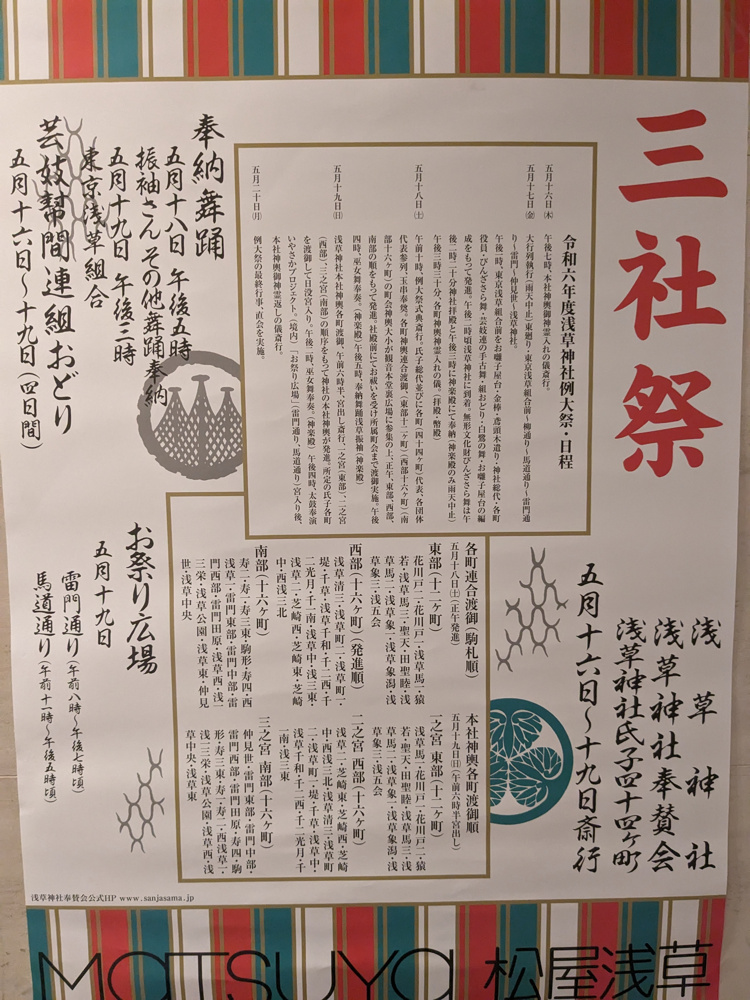 三社祭
浅草神社
浅草神社奉賛会
浅草神社氏子四十四ヶ町
五月十六日〜十九日斎行
令和六年度浅草神社例大祭・日程
五月十六日㈭
午後七時、本社神輿御神霊入れの儀斎行。
五月十七日㈮
大行列執行（雨天中止）東廻り・東京浅草組合前〜柳通り〜馬道通り〜雷門通
り〜雷門〜仲見世〜浅草神社。
午後一時、東京浅草組合前をお囃子屋台・金棒・鳶頭木遣り・神社総代・各町
役員・びんざさら舞・芸妓連の手古舞・組おどり・白鷺の舞・お囃子屋台の編
成をもって発進。午後二時頃浅草神社に到着。無形文化財びんざさら舞は午
後二時二十分神社拝殿と午後三時に神楽殿にて奉納（神楽殿のみ雨天中止）
午後三時三十分、各町神輿神霊入れの儀。（拝殿・幣殿）
五月十八日㈯
午前十時、例大祭式典斎行。氏子総代並びに各町（四十四ヶ町）代表、各団体
代表参列、玉串奉奠。各町神輿連合渡御（東部十二ヶ町）（西部十六ヶ町）（南
部十六ヶ町）の町会神輿大小が観音本堂裏広場に参集の上、正午、東部、西部、
南部の順をもって発進。社殿前にてお祓いを受け所属町会まで渡御実施。午後
四時、巫女舞奉奏。（神楽殿）午後五時、奉納舞踊浅草振袖（神楽殿）
五月十九日㈰
浅草神社本社神輿各町渡御、午前六時半、宮出し斎行、一之宮（東部）、二之宮
（西部）、三之宮（南部）の順序をもって神社の本社神輿が発進。所定の氏子各町
を渡御して日没宮入り。午後二時、巫女舞奉奏。（神楽殿）午後四時、太鼓奉演
いやさかプロジェクト。（境内）「お祭り広場」（雷門通り、馬道通り）宮入り後、
本社神輿御神霊返しの儀斎行。
五月二十日㈪
例大祭の最終行事、直会を実施。
奉納舞踊
五月十八日 午後五時
振袖さん その他舞踊奉納
五月十九日 午後三時
東京浅草組合
芸妓幇間連組おどり
五月十六日〜十九日（四日間）
各町連合渡御（駒札順）
五月十八日㈯（正午発進）
東部（十二ヶ町）
花川戸二・花川戸一・浅草馬一・猿
若・浅草馬三・聖天・田聖睦・浅
草馬二・浅草象一・浅草象潟・浅
草象三・浅五会
西部（十六ヶ町）（発進順）
浅草清三・浅草町二・浅草町一・
堤・千草・浅草千和・千二西・千
二光月・千一南・浅草中・浅三東・
浅草二・芝崎西・芝崎東・芝崎
中・西浅三北
南部（十六ヶ町）
寿二・寿一・寿三東・駒形・寿四・西
浅草一・雷門東部・雷門中部・雷
門西部・雷門田原・浅草西・浅一
三栄・浅草公園・浅草東・仲見
世・浅草中央
本社神輿各町渡御順
五月十九日㈰（午前六時半宮出し）
一之宮 東部（十二ヶ町）
浅草馬一・花川戸一・花川戸二・猿
若・聖天・田聖睦・浅草馬三・浅
草馬二・浅草象一・浅草象潟・浅
草象三・浅五会
二之宮 西部（十六ヶ町）
浅草二・芝崎東・芝崎西・芝崎
中・西浅三北・浅草清三・浅草町
二・浅草町一・堤・千草・浅草中・
浅草千和・千二西・千二光月・千
一南・浅三東
三之宮 南部（十六ヶ町）
仲見世・雷門東部・雷門中部・
雷門西部・雷門田原・寿四・駒
形・寿三東・寿一・寿二・西浅草一・
浅一三栄・浅草公園・浅草西・浅
草中央・浅草東
お祭り広場
五月十九日
雷門通り（午前八時〜午後七時頃）
馬道通り（午前十一時〜午後五時頃）
浅草神社奉賛会公式HP www.sanjasama.jp
MATSUYA 松屋浅草